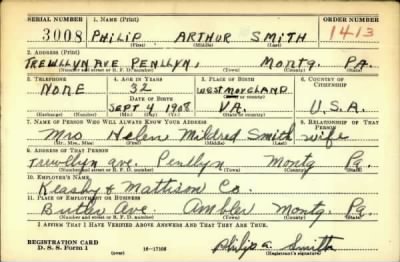 SERIAL NUMBER 1. NAME (Print) ORDER NUMBER
3008 PHILIP ARTHUR SMITH 1413
(First) (Middle) (Last)
2. ADDRESS (Print)
TREWLLYN AVE PENLLYN, MONTG. PA.
(Number and street or R. F. D. number) (Town) (County) (State)
3. TELEPHONE 4. AGE IN YEARS 5. PLACE OF BIRTH 6. COUNTRY OF CITIZENSHIP
NONE 32 WESTMORELAND
DATE OF BIRTH
SEPT 4 1908 VA. U.S.A.
(Exchange) (Number) (Mo.) (Day) (Yr.) (State or country)
7. NAME OF PERSON WHO WILL ALWAYS KNOW YOUR ADDRESS 8. RELATIONSHIP OF THAT PERSON
Mrs Helen Mildred Smith wife
(Mr., Mrs., Miss) (First) (Middle) (Last)
9. ADDRESS OF THAT PERSON
Trewllyn ave. Penllyn Montg Pa.
(Number and street or R. F. D. number) (Town) (County) (State)
10. EMPLOYER'S NAME
Keasby & Mattison Co.
11. PLACE OF EMPLOYMENT OR BUSINESS
Butler Ave. Ambler Montg. Pa.
(Number and street or R. F. D. number) (Town) (County) (State)
I AFFIRM THAT I HAVE VERIFIED ABOVE ANSWERS AND THAT THEY ARE TRUE.
REGISTRATION CARD
D. S. S. Form 1 (over) 16—17105 Philip a. Smith
(Registrant's signature)